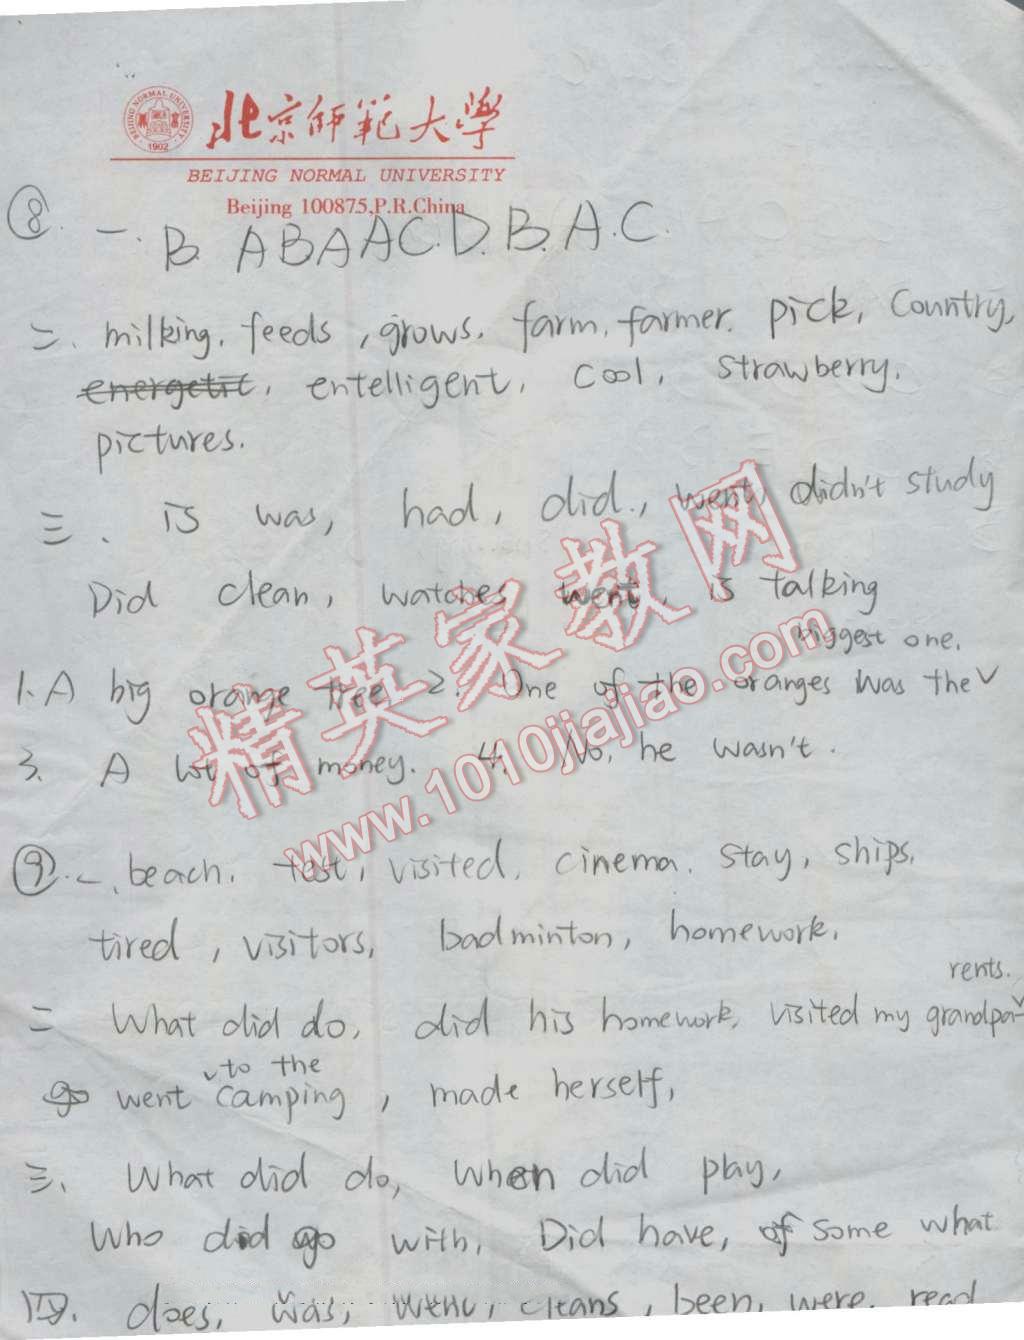 北京师范大学
BEIJING NORMAL UNIVERSITY
Beijing 100875,P.R.China
⑧. 一. B. A B A A C. D. B. A. C.
二. milking, feeds, grows, farm, farmer, pick, Country,
energetic, entelligent, cool, strawberry,
pictures.
三. is was, had, did, went, didn't study
Did clean, watches went, is talking
biggest one.
1. A big orange tree 2. One of the oranges was the ✓
3. A lot of money. 4. No, he wasn't.
⑨. 一. beach, test, visited, cinema, stay, ships,
tired, visitors, badminton, homework,
rents.
二 What did do, did his homework, visited my grandpa ✓
to the
go went camping, made herself,
三. What did do, When did play,
Who did go with, Did have, of some what
四. does, was, went, cleans, been, were, read
精英家教网
www.1010jiajiao.com